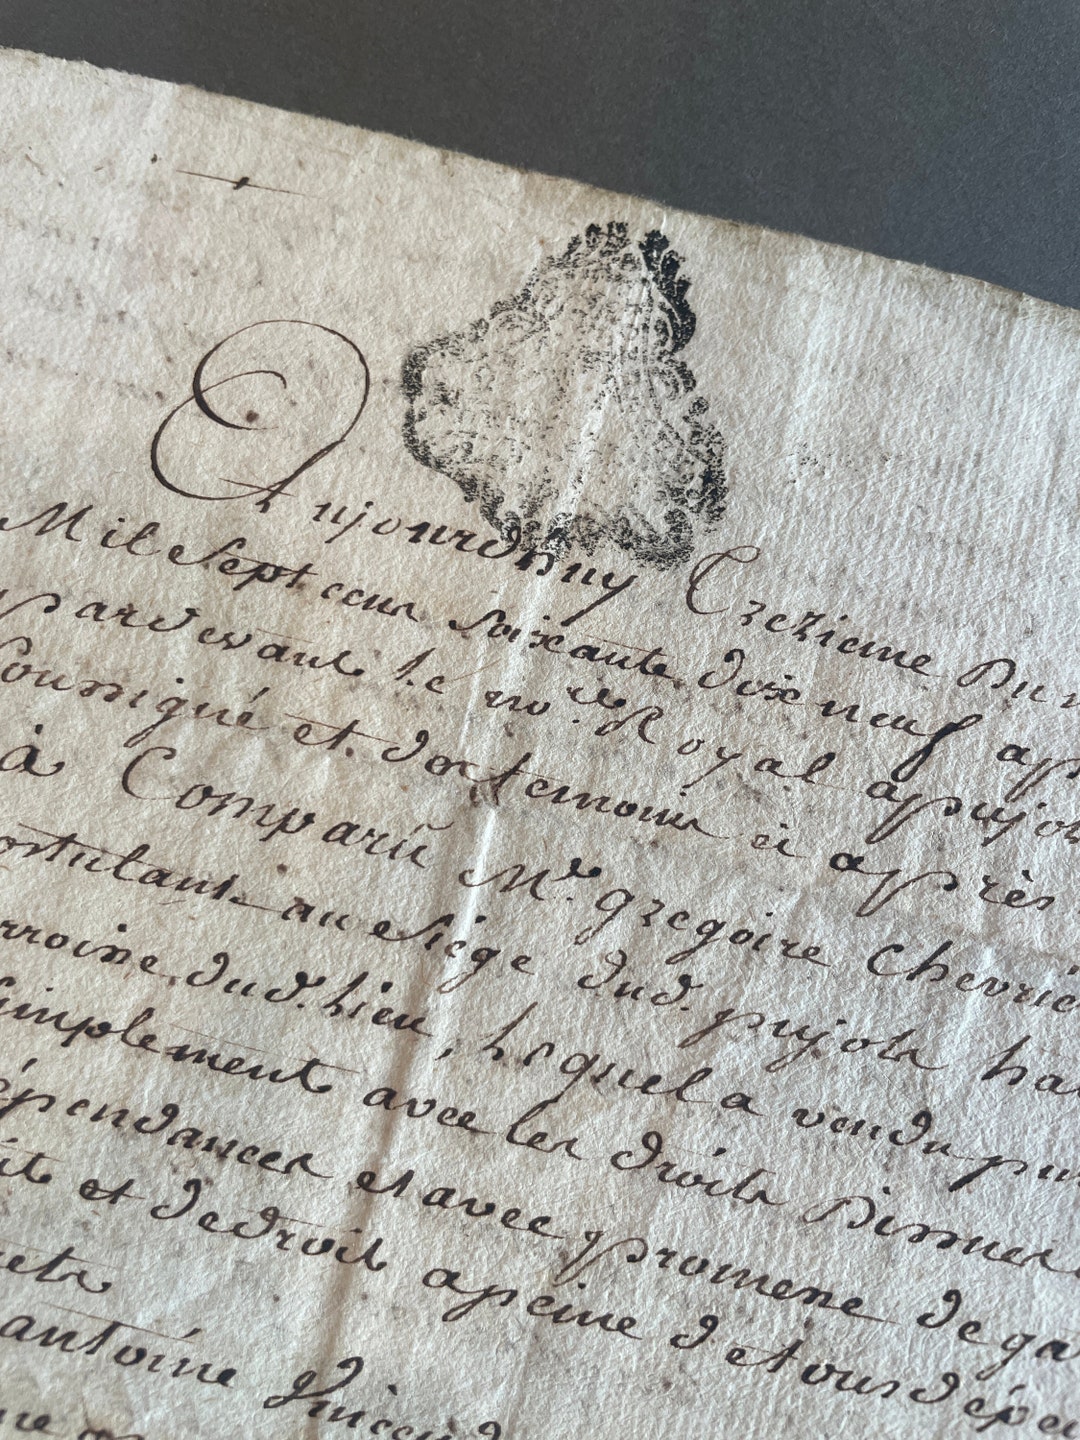 Aujourdhuy Trezieme Du
Mil Sept cens Soixante dixneuf ap
pardevant le no.re Royal a pujols
Soussigné et des temoins ci après
à Comparû Mr. gregoire Chevrie
ostulant au Siége dud. pujols ha
arroisse dud. lieu, lequel a vendu pu
Simplement avec les droits
épendances et avec promesse de ga
it et de droit a peine de tous dépe
rets
antoine Vincend